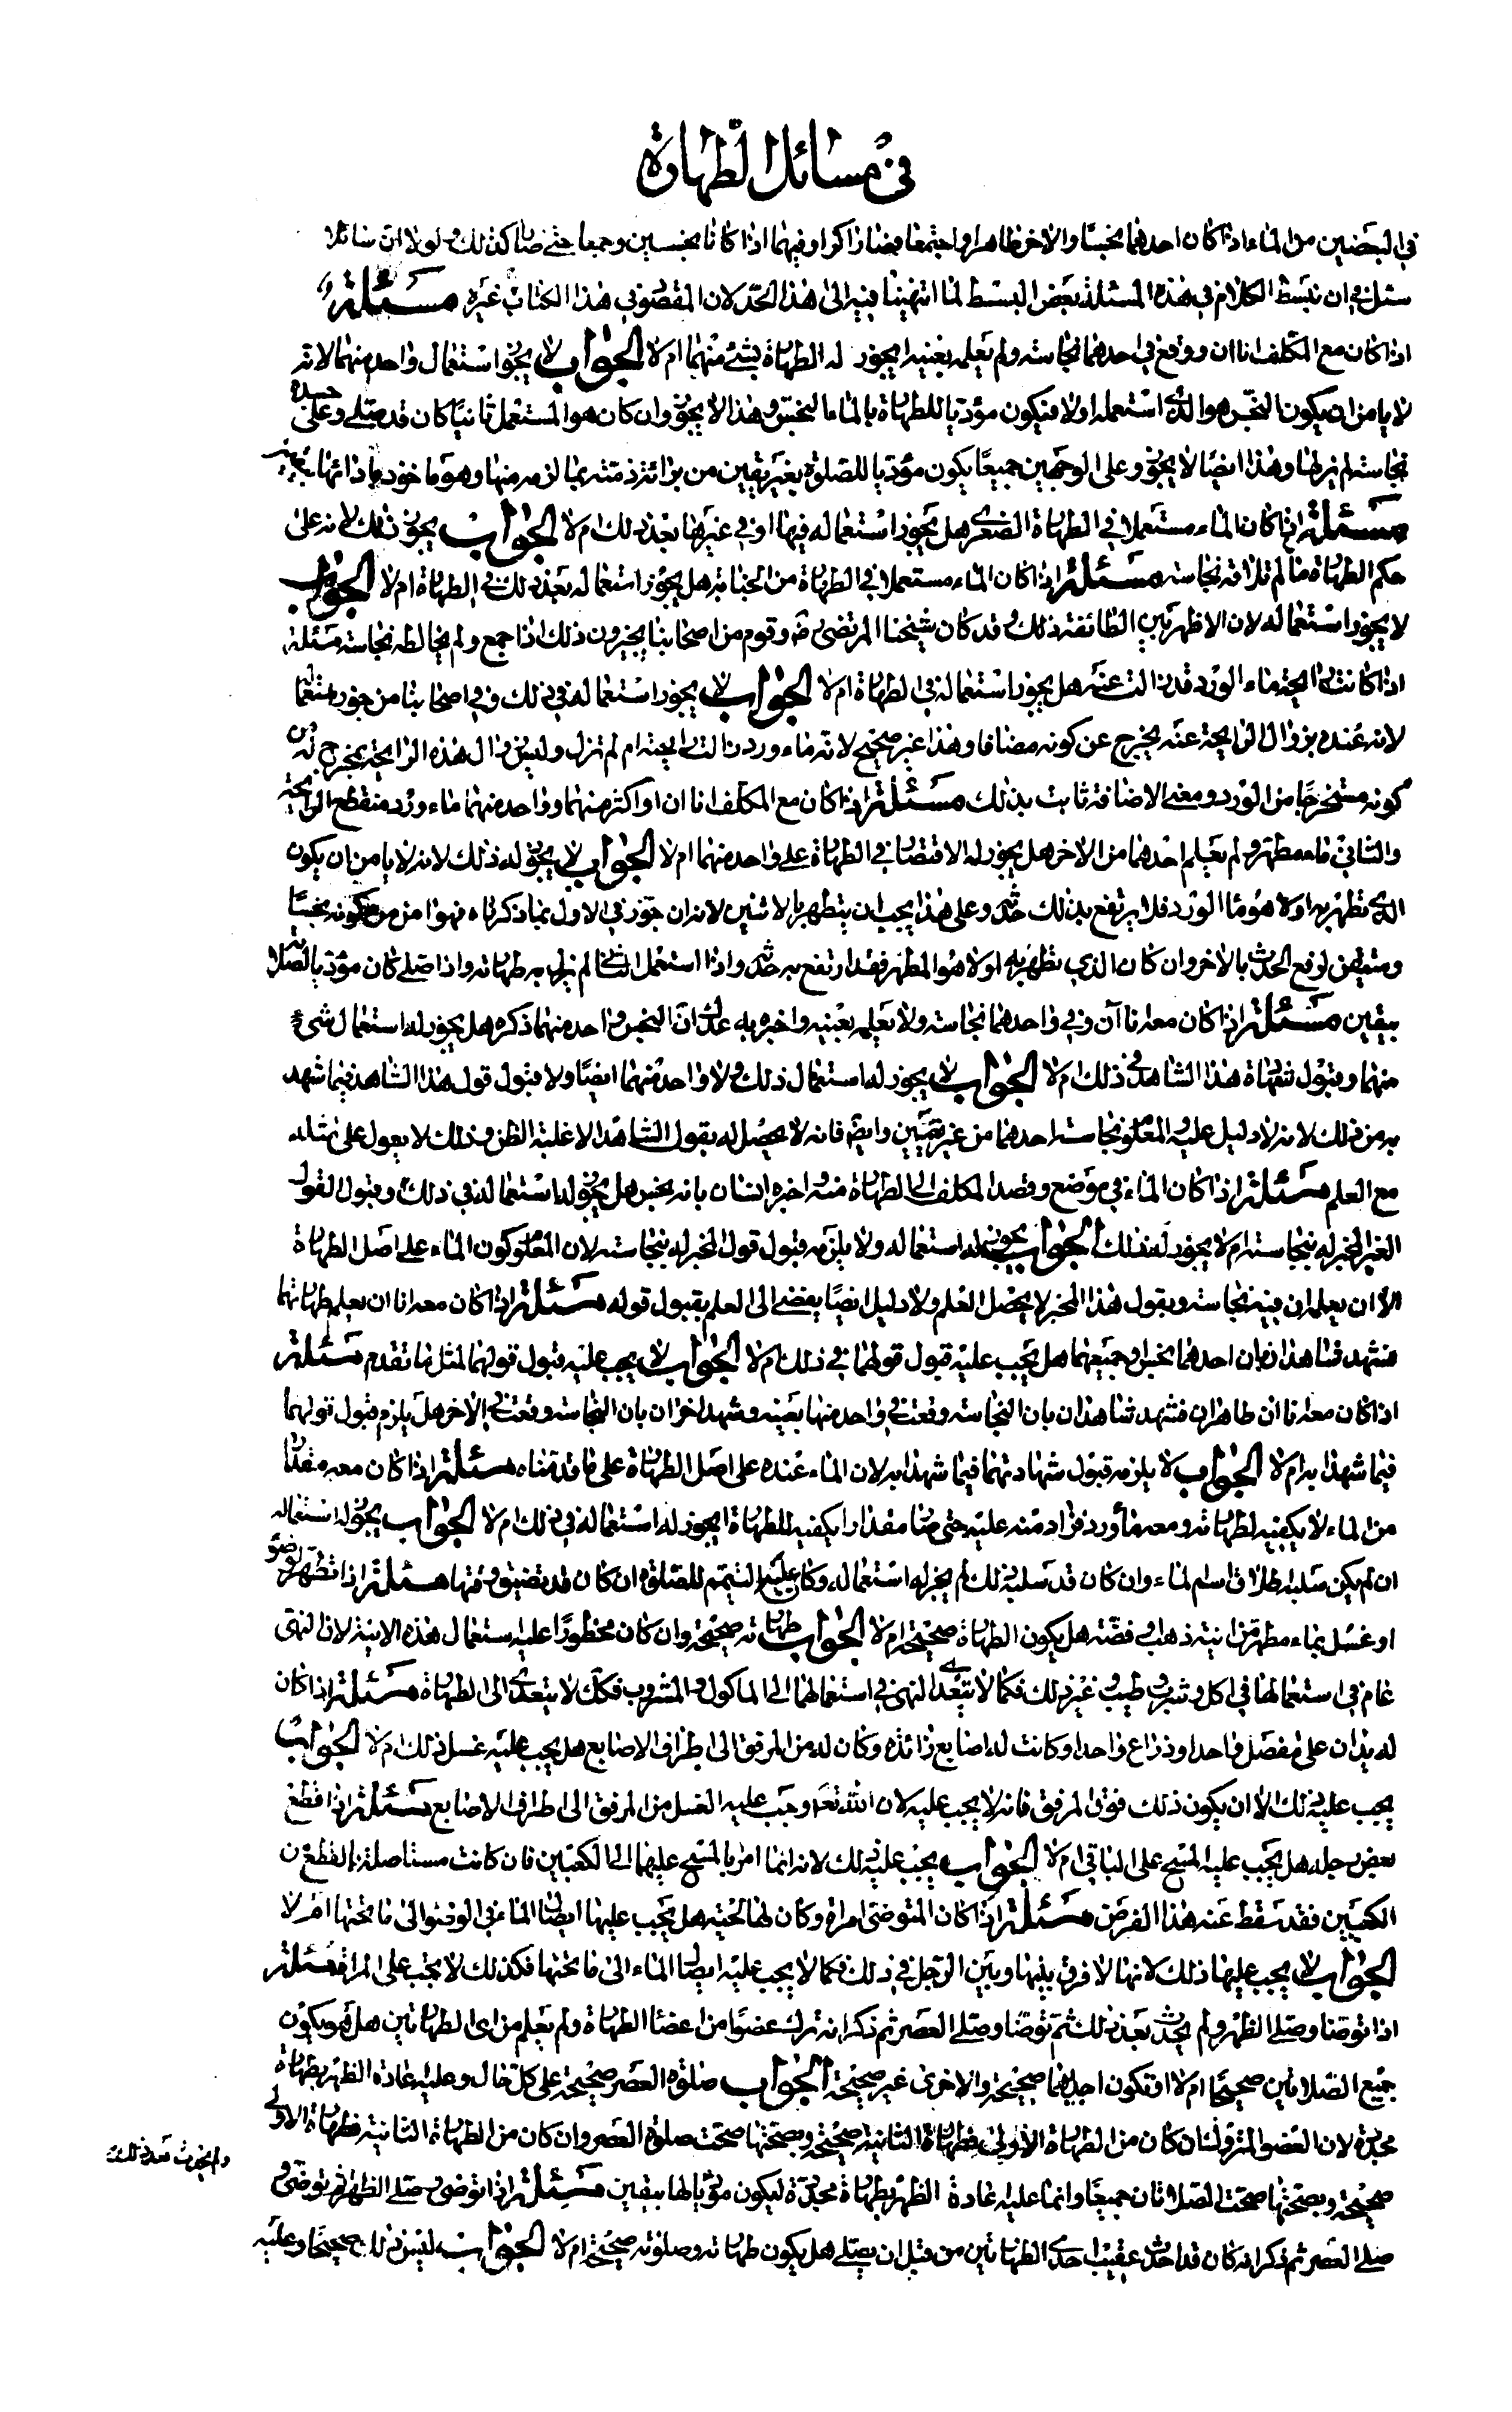 في مسائل الطهارة
في البعضين من الماء اذا كان احدهما نجسا والاخر طاهرا واجتمعا فصارا كرا وفيهما اذا كانا نجسين وجمعا حتى صارا كذلك ولولا ان سائلا
سئل في ان نبسط الكلام في هذه المسئلة بعض البسط لما انتهينا فيه الى هذا الحد لان المقصود في هذا الكتاب غيره مسئلة
اذا كان مع المكلف اناان ووقع في احدهما نجاسة ولم يعلمه بعينه ايجوز له الطهارة بشئ منهما ام لا الجواب لا يجوز استعمال واحد منهما لانه
لا يامن ان يكون النجس هو الذي استعمله اولا فيكون مؤديا للطهارة بالماء النجس وهذا لا يجوز وان كان هو المستعمل ثانيا كان قد صلى وعلى جسده
نجاسة لم يزلها وهذا ايضا لا يجوز وعلى الوجهين جميعا يكون مؤديا للصلوة بغير يقين من برائة ذمته مما لزمه منها وهو ماخوذ باذائها بيقين
مسئلة اذا كان الماء مستعملا في الطهارة الصغرى هل يجوز استعماله فيها او في غيرها بعد ذلك ام لا الجواب يجوز ذلك لانه على
حكم الطهارة ما لم تلاقه نجاسة مسئلة اذا كان الماء مستعملا في الطهارة من الجنابة هل يجوز استعماله بعد ذلك في الطهارة ام لا الجواب
لا يجوز استعماله لان الاظهر بين الطائفة ذلك وقد كان شيخنا المرتضى ره وقوم من اصحابنا يجيزون ذلك اذا جمع ولم يخالطه نجاسة مسئلة
اذا كانت رايحة ماء الورد قد زالت عنه هل يجوز استعماله في الطهارة ام لا الجواب لا يجوز استعماله في ذلك وفي اصحابنا من جوز استعماله
لانه عنده بزوال الرايحة عنه يخرج عن كونه مضافا وهذا غير صحيح لانه ماء ورد زالت رايحته ام لم تزل وليس زوال هذه الرايحة بمخرج له من
كونه مستخرجا من الورد ومعنى الاضافة ثابت بذلك مسئلة اذا كان مع المكلف اناان او اكثر منهما وواحد منهما ماء ورد منقطع الرايحة
والثاني ماء مطهر ولم يعلم احدهما من الاخر هل يجوز له الاقتصار في الطهارة على واحد منهما ام لا الجواب لا يجوز له ذلك لانه لا يامن ان يكون
الذي تطهر به اولا هو ماء الورد فلا يرتفع بذلك حدثه وعلى هذا يجب ان يتطهر بالاثنين لانه ان جوز في الاول بما ذكرناه فهو امن من كونه نجسا
ومتيقن لرفع الحدث بالاخر وان كان الذي تطهر به اولا هو المطهر فقد ارتفع به حدثه واذا استعمل الثاني لم يزل به طهارته واذا صلى كان مؤديا لصلاته
بيقين مسئلة اذا كان معه اناآن وفي واحد هما نجاسة ولا يعلمه بعينه واخبره به عدل ان النجس واحد منهما ذكره هل يجوز له استعمال شئ
منهما وقبول شهادة هذا الشاهد في ذلك ام لا الجواب لا يجوز له استعمال ذلك ولا واحد منهما ايضا ولا قبول قول هذا الشاهد فيما شهد
به من ذلك لانه لا دليل عليه والمعلوم نجاسة احدهما من غير تعيين وايضا فانه لا يحصل له بقول الشاهد الا غلبة الظن وذلك لا يعول على مثله
مع العلم مسئلة اذا كان الماء في موضع وقصد المكلف الى الطهارة منه واخبره انسان بانه نجس هل يجوز له استعماله في ذلك وقبول القول
الغير المخبر له بنجاسته ام لا يجوز له ذلك الجواب يجوز له استعماله ولا يلزمه قبول قول المخبر له بنجاسته لان المعلوم كون الماء على اصل الطهارة
الا ان يعلم ان فيه نجاسة وبقول هذا المخبر لا يحصل العلم ولا دليل ايضا يفضى الى العلم بقبول قوله مسئلة اذا كان معه اناان يعلم طهارتهما
فشهد شاهدان بان احدهما نجس وجميعهما هل يجب عليه قبول قولهما في ذلك ام لا الجواب لا يجب عليه قبول قولهما لمثل ما تقدم مسئلة
اذا كان معه اناان طاهران فشهد شاهدان بان النجاسة وقعت في واحد منها بعينه وشهد اخران بان النجاسة وقعت في الاخر هل يلزم قبول قولهما
فيما شهدا به ام لا الجواب لا يلزمه قبول شهادتهما فيما شهدا به لان الماء عنده على اصل الطهارة على ما قدمناه مسئلة اذا كان معه مقدار
من الماء لا يكفيه لطهارته ومعه ماء ورد فزاد منه عليه حتى صار مقدارا يكفيه للطهارة ايجوز له استعماله في ذلك ام لا الجواب يجوز له استعماله
ان لم يكن سلبه اطلاق اسم الماء وان كان قد سلبه ذلك لم يجز له استعماله وكان عليه التيمم للصلوة ان كان قد تضيق وقتها مسئلة اذا تطهر لوضوء
او غسل بماء مطهر من انية ذهب او فضة هل يكون الطهارة صحيحة ام لا الجواب طهارته صحيحة وان كان محظورا عليه استعمال هذه الانية لان النهى
عام في استعمالها في اكل وشرب وطيب وغير ذلك فكما لا يتعدى النهى في استعمالها الى الماكول والمشروب فكك لا يتعدى الى الطهارة مسئلة اذا كان
له يدان على مفصل واحد او ذراع واحد او كانت له اصابع زائدة وكان له من المرفق الى اطراف الاصابع هل يجب عليه غسل ذلك ام لا الجواب
يجب عليه ذلك الا ان يكون ذلك فوق المرفق فانه لا يجب عليه لان الله تعالى اوجب عليه الغسل من المرفق الى اطراف الاصابع مسئلة اذا قطع
بعض رجله هل يجب عليه المسح على الباقي ام لا الجواب يجب عليه ذلك لانه انما امر بالمسح عليهما الى الكعبين فان كانت مستاصلة بالقطع من
الكعبين فقد سقط عنه هذا الفرض مسئلة اذا كان المتوضى امراة وكان لها لحية هل يجب عليها ايصال الماء في الوضوء الى ما تحتها ام لا
الجواب لا يجب عليها ذلك لانها لا فرق بينها وبين الرجل في ذلك فكما لا يجب عليه ايصال الماء الى ما تحتها فكذلك لا يجب على المراة مسئلة
اذا توضا وصلى الظهر ولم يحدث بعد ذلك ثم توضا وصلى العصر ثم ذكر انه ترك عضوا من اعضاء الطهارة ولم يعلم من اى الطهارتين هل هو يكون
جميع الصلاتين صحيحا ام لا او تكون احديهما صحيحة والاخرى غير صحيحة الجواب صلوة العصر صحيحة على كل حال وعليه اعادة الظهر بطهارة
مجددة لان العضو المتروك ان كان من الطهارة الاولى فطهارة الثانية صحيحة وبصحتها صحت صلوة العصر وان كان من الطهارة الثانية فطهارة الاولى
صحيحة وبصحتها صحت الصلاتان جميعا وانما عليه اعادة الظهر بطهارة مجددة ليكون مؤديا لها بيقين مسئلة اذا توضى وصلى الظهر ثم توضى و
صلى العصر ثم ذكر انه كان قد احدث عقيب احدى الطهارتين من قبل ان يصلى هل يكون طهارته وصلوته صحيحة ام لا الجواب ليس ذلك صحيحا وعليه
ولم يحدث بعد ذلك